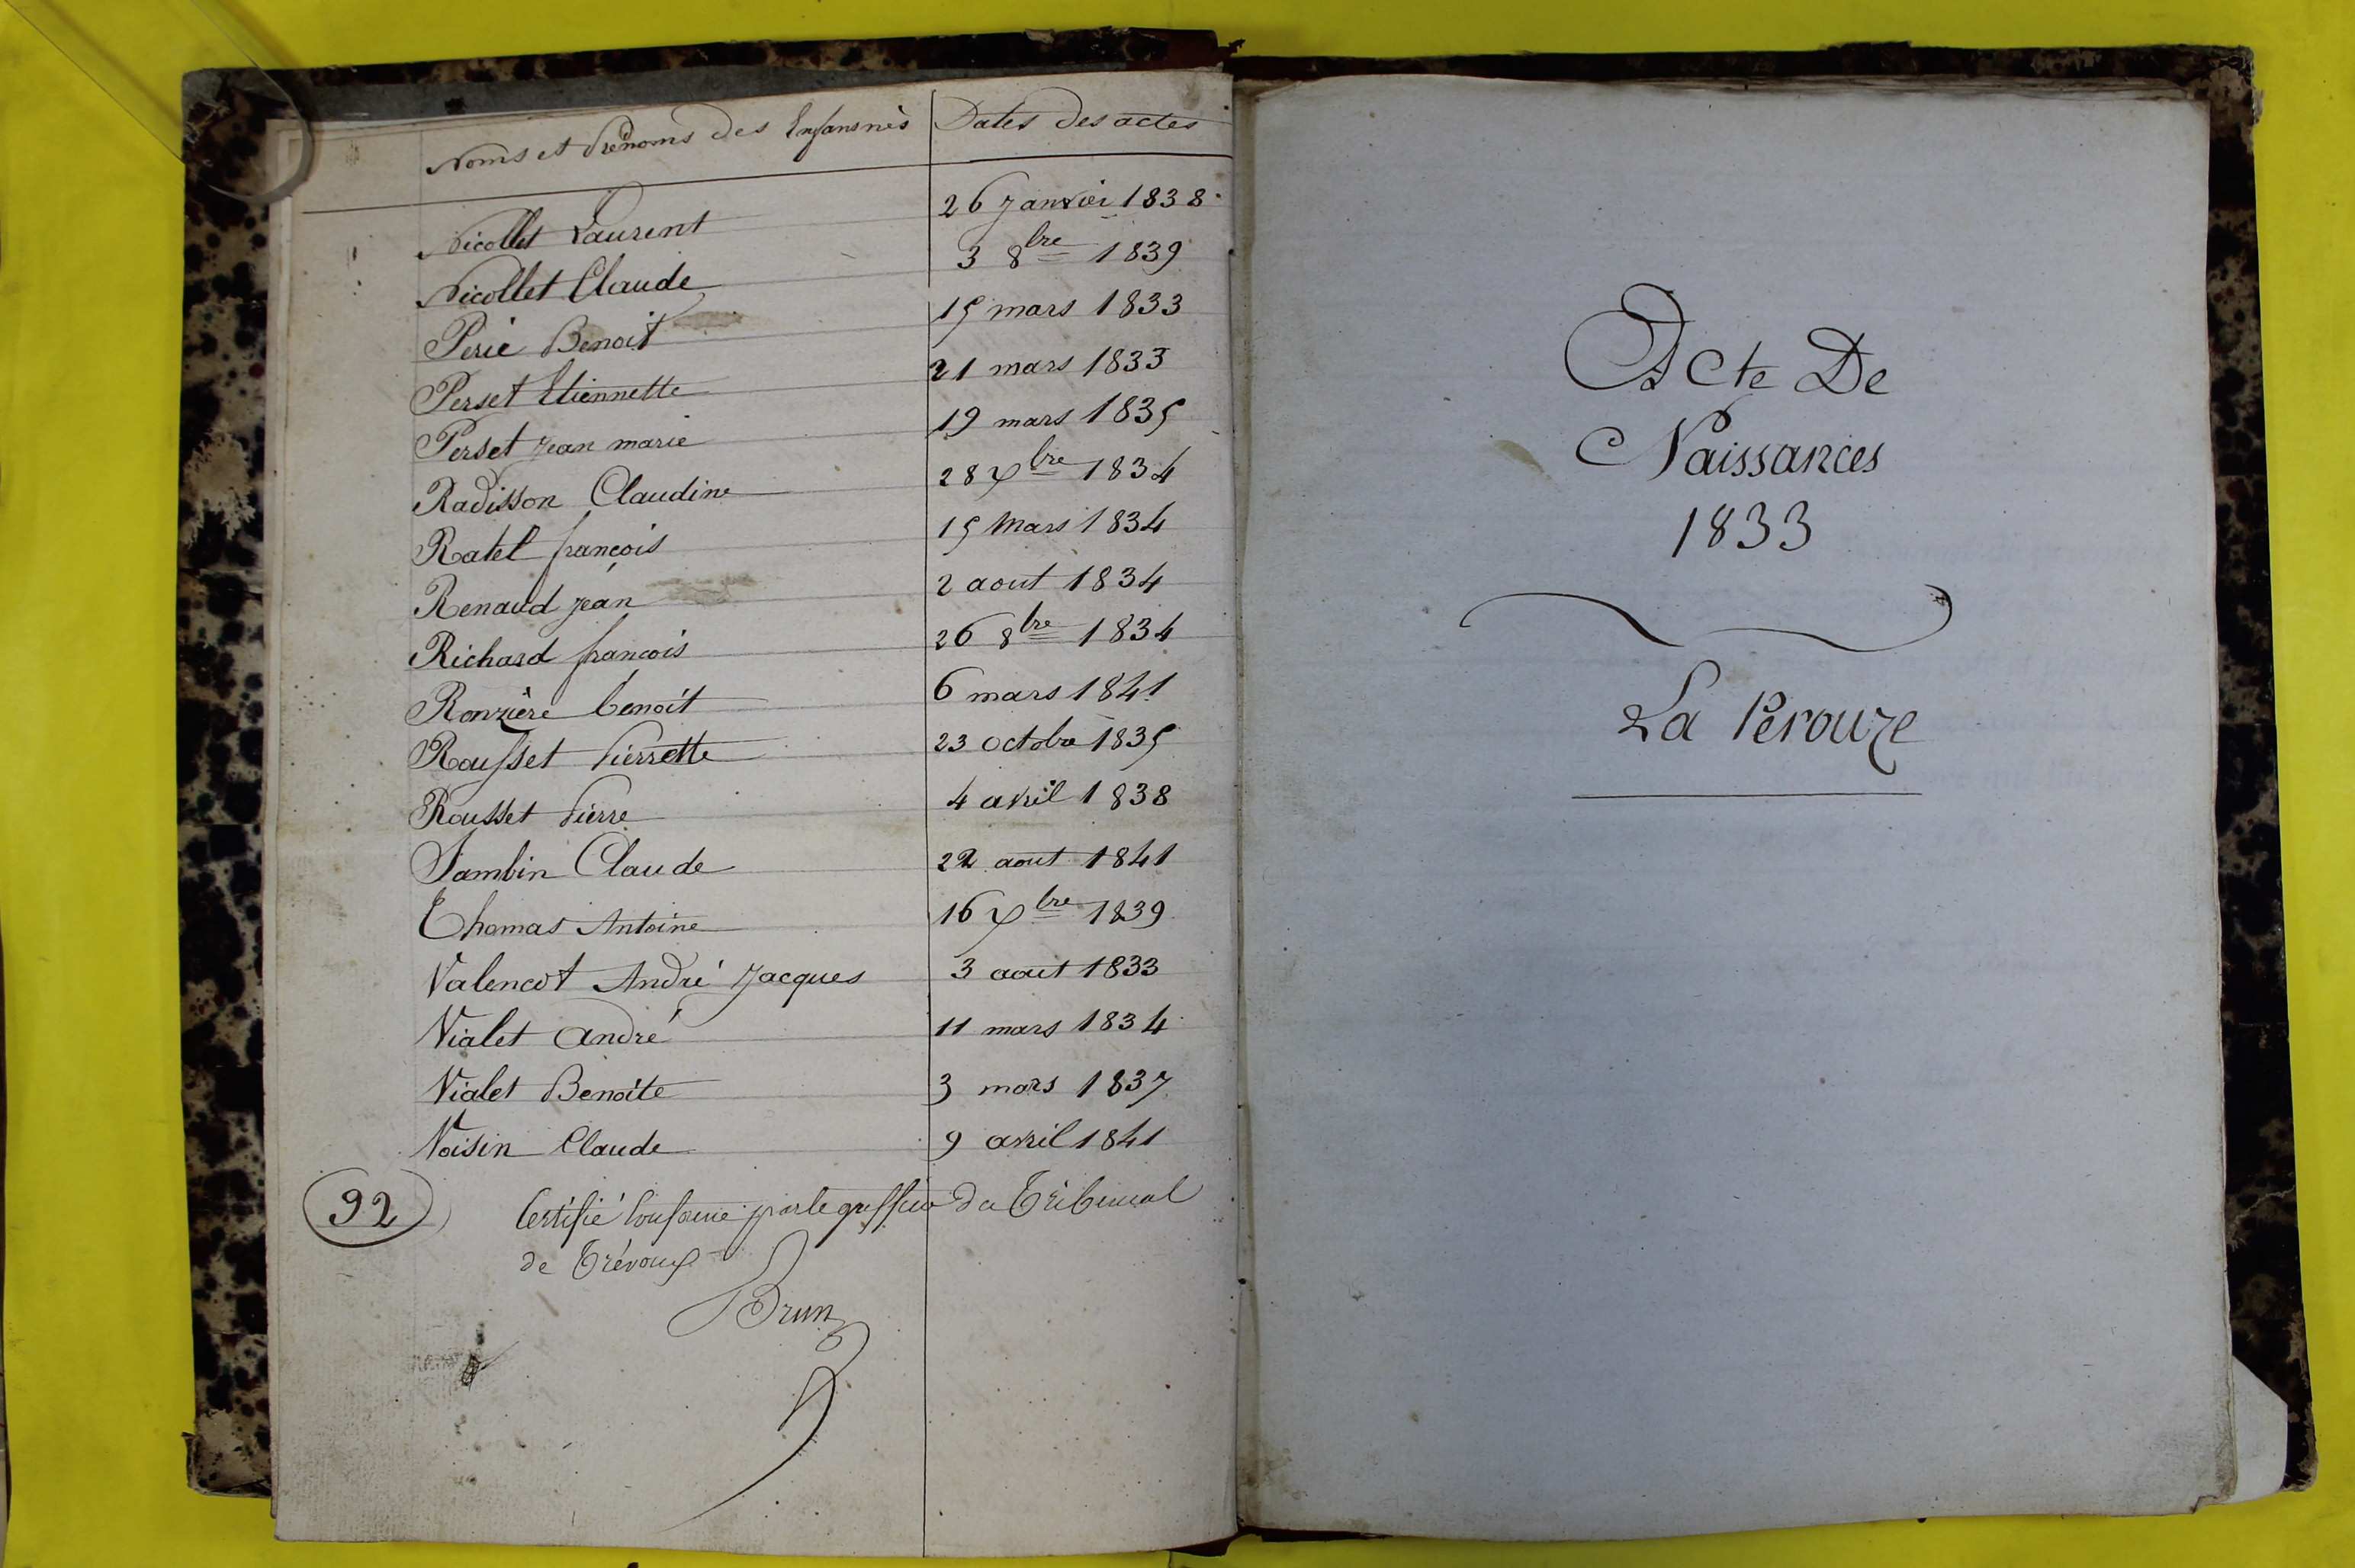 Noms et Prénoms des Enfans nés Dates des actes
Nicollet Laurent 26 Janvier 1838
Nicollet Claude 3 8bre 1839
Perié Benoit 15 mars 1833
Perset Etiennette 21 mars 1833
Perset Jean marie 19 mars 1835
Radisson Claudine 28 Xbre 1834
Ratel françois 15 Mars 1834
Renaud Jean 2 aout 1834
Richard francois 26 8bre 1834
Ronzière benoit 6 mars 1841
Rousset Pierrette 23 octobre 1835
Rousset Pierre 4 avril 1838
Sambin Claude 22 aout 1841
Thomas Antoine 16 Xbre 1839
Valencot André Jacques 3 aout 1833
Vialet andré 11 mars 1834
Vialet Benoite 3 mars 1837
Voisin Claude 9 avril 1841
92 Certifié Conforme par le greffier du Tribunal
de Trévoux
Brun
Acte De
Naissances
1833
La Pérouze